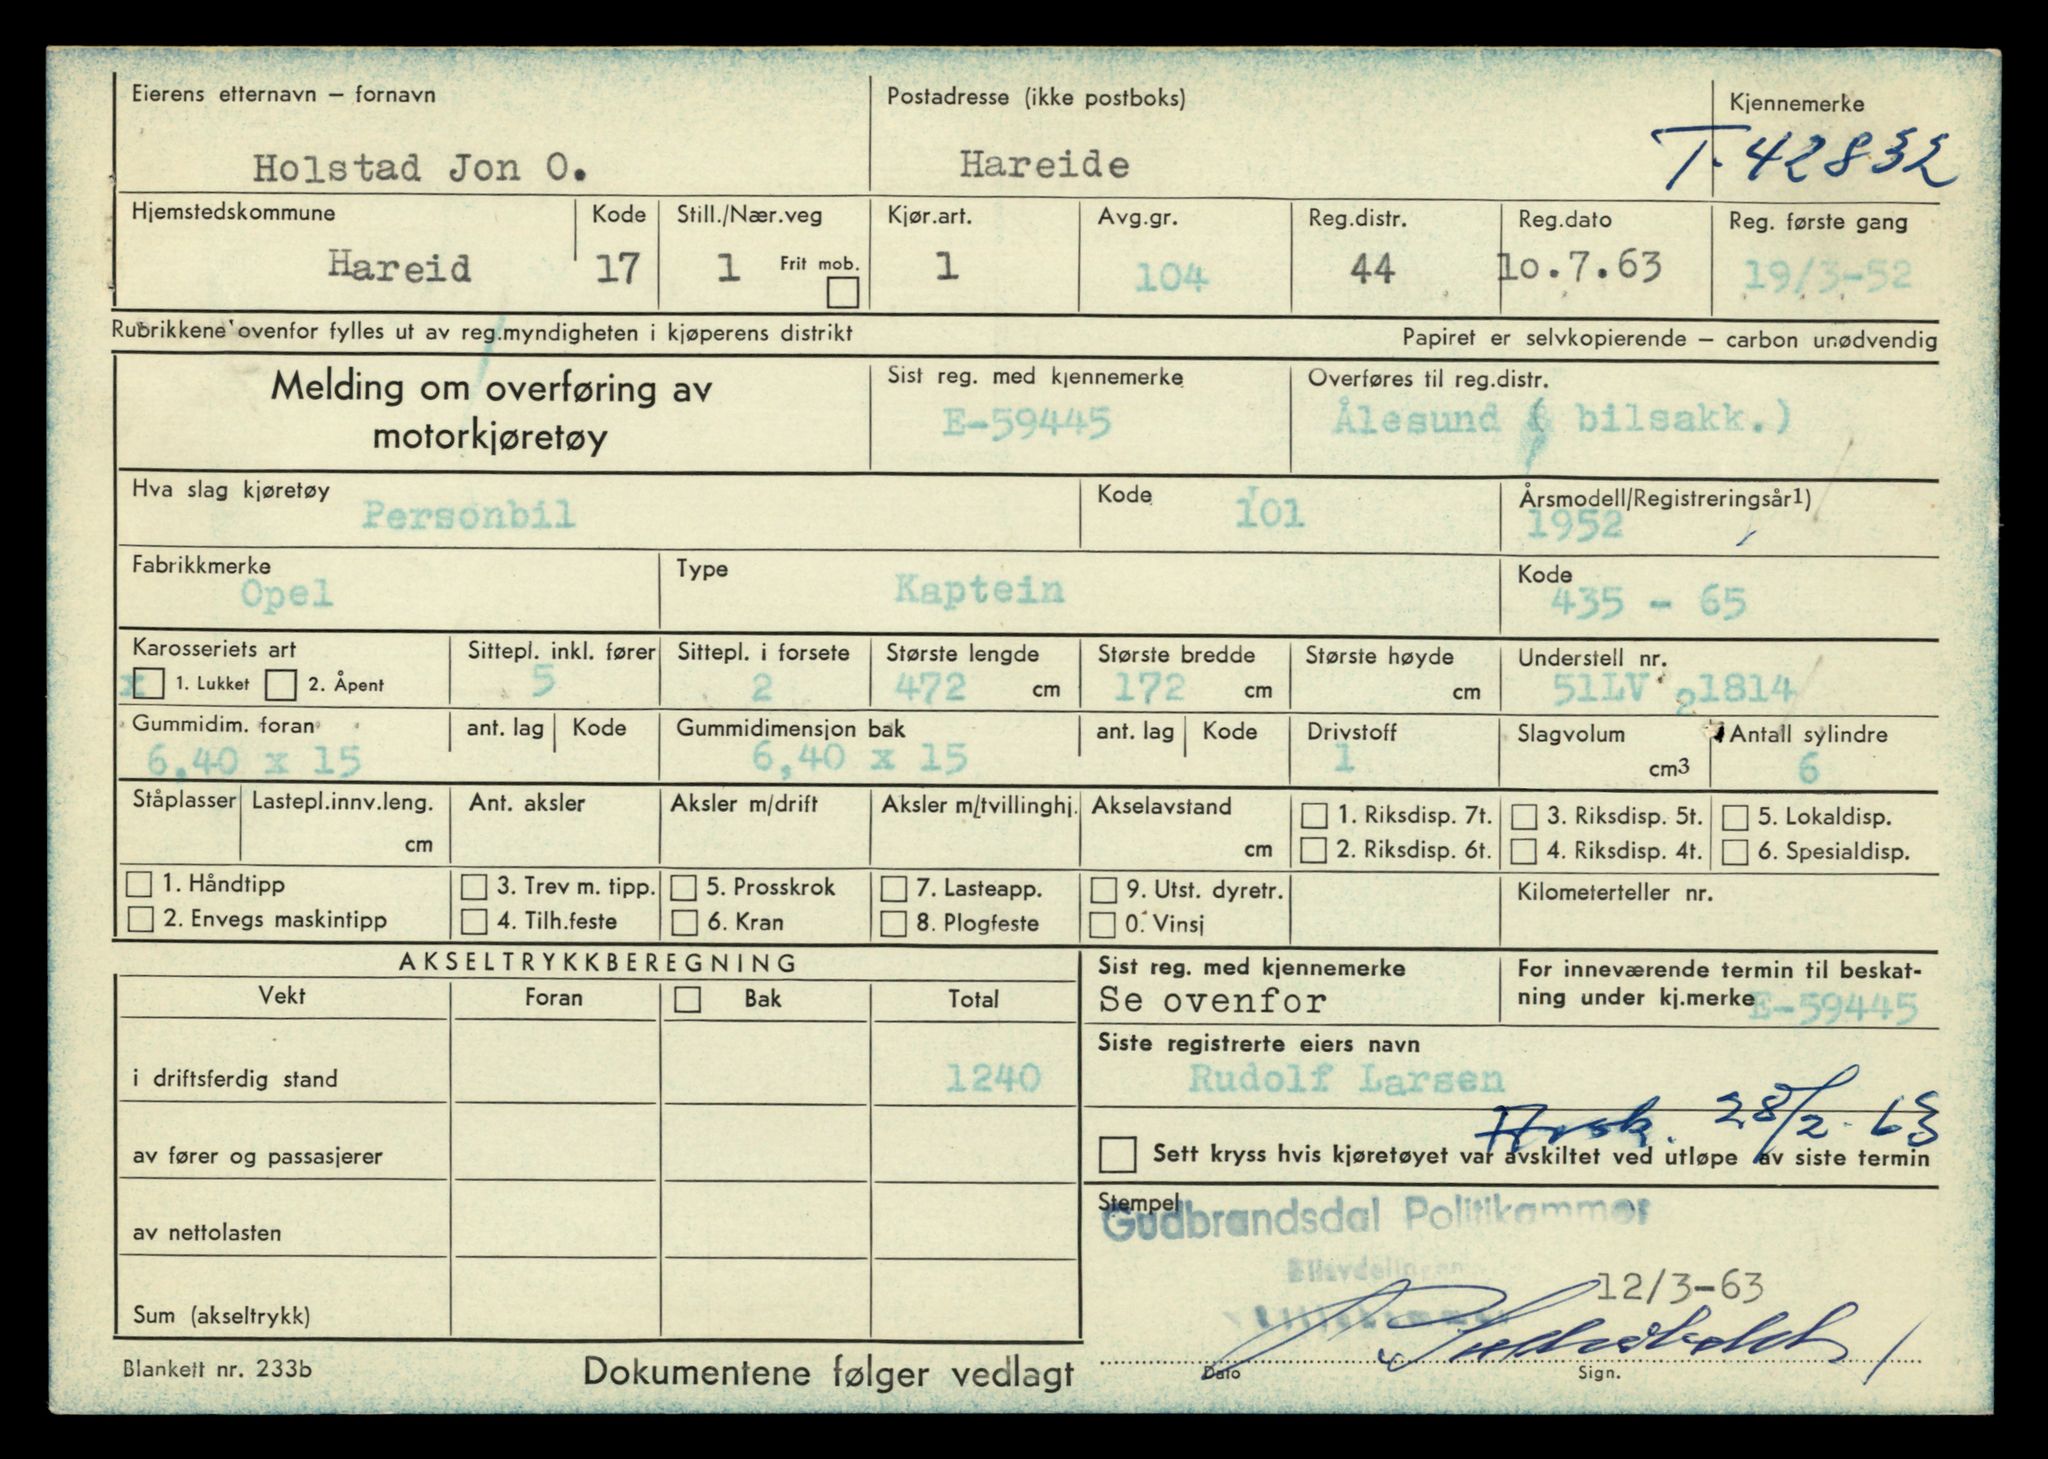 Eierens etternavn – fornavn
Postadresse (ikke postboks)
Kjennemerke
Holstad Jon O.
Hareide
T-42832
Hjemstedskommune
Kode
Still./Nær.veg
Kjør.art.
Avg.gr.
Reg.distr.
Reg.dato
Reg. første gang
Hareid
17
1
Frit mob.
1
104
44
10.7.63
19/3-52
Rubrikkene ovenfor fylles ut av reg.myndigheten i kjøperens distrikt
Papiret er selvkopierende – carbon unødvendig
Melding om overføring av
motorkjøretøy
Sist reg. med kjennemerke
E-59445
Overføres til reg.distr.
Ålesund ( bilsakk.)
Hva slag kjøretøy
Personbil
Kode
101
Årsmodell/Registreringsår1)
1952
Fabrikkmerke
Opel
Type
Kaptein
Kode
435 - 65
Karosseriets art
x 1. Lukket 2. Åpent
Sittepl. inkl. fører
5
Sittepl. i forsete
2
Største lengde
472 cm
Største bredde
172 cm
Største høyde
cm
Understell nr.
51LV 21814
Gummidim. foran
6.40 x 15
ant. lag
Kode
Gummidimensjon bak
6,40 x 15
ant. lag
Kode
Drivstoff
1
Slagvolum
cm3
Antall sylindre
6
Ståplasser
Lastepl.innv.leng.
cm
Ant. aksler
Aksler m/drift
Aksler m/tvillinghj.
Akselavstand
cm
1. Riksdisp. 7t.
2. Riksdisp. 6t.
3. Riksdisp. 5t.
4. Riksdisp. 4t.
5. Lokaldisp.
6. Spesialdisp.
1. Håndtipp
2. Envegs maskintipp
3. Trev m. tipp.
4. Tilh.feste
5. Prosskrok
6. Kran
7. Lasteapp.
8. Plogfeste
9. Utst. dyretr.
0. Vinsj
Kilometerteller nr.
AKSELTRYKKBEREGNING
Vekt
Foran
Bak
Total
i driftsferdig stand
1240
av fører og passasjerer
av nettolasten
Sum (akseltrykk)
Sist reg. med kjennemerke
Se ovenfor
For inneværende termin til beskat-
ning under kj.merke E-59445
Siste registrerte eiers navn
Rudolf Larsen
Avsk. 28/2-63
Sett kryss hvis kjøretøyet var avskiltet ved utløpe av siste termin
Stempel
Gudbrandsdal Politikammer
Bilavdelingen
Lillehammer
12/3-63
Dato
Sign.
Blankett nr. 233b
Dokumentene følger vedlagt